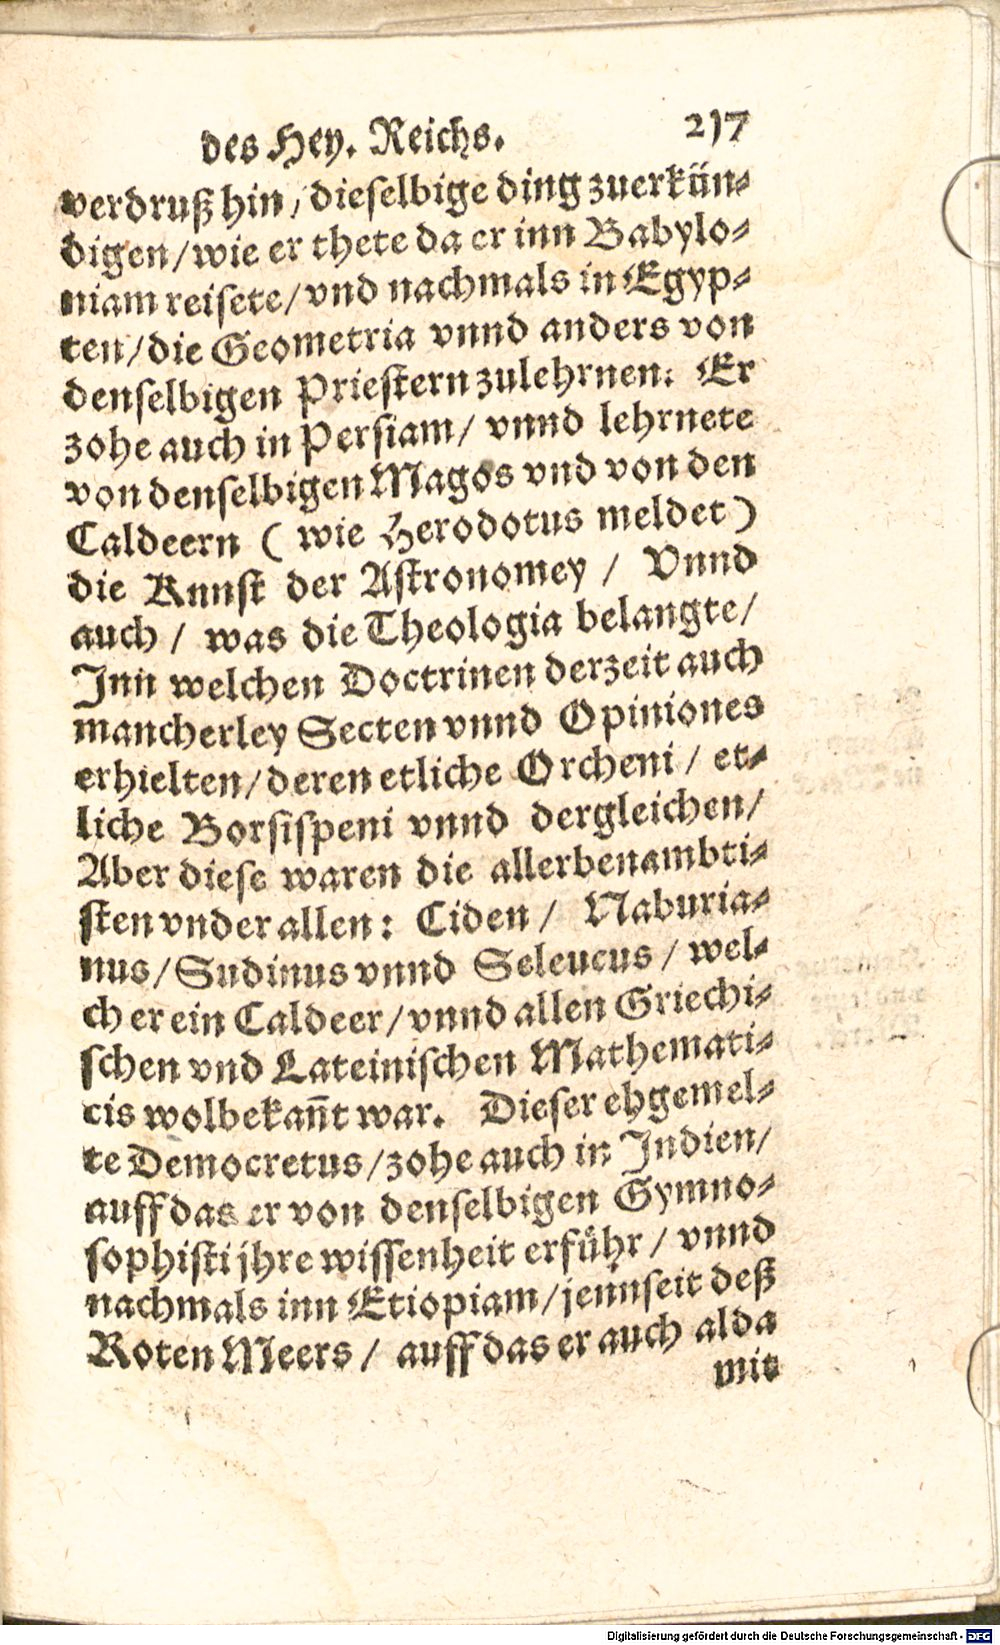 des Hey. Reichs. 217
verdruß hin / dieselbige ding zuerkün⸗
digen / wie er thete da er inn Babylo⸗
niam reisete / vnd nachmals in Egyp⸗
ten / die Geometria vnnd anders von
denselbigen Priestern zulehrnen: Er
zohe auch in Persiam / vnnd lehrnete
von denselbigen Magos vnd von den
Caldeern ( wie Herodotus meldet )
die Knnst der Astronomey / Vnnd
auch / was die Theologia belangte /
Jnn welchen Doctrinen derzeit auch
mancherley Secten vnnd Opiniones
erhielten / deren etliche Orcheni / et⸗
liche Borsispeni vnnd dergleichen /
Aber diese waren die allerbenambti⸗
sten vnder allen: Ciden / Naburia⸗
nus / Sudinus vnnd Seleucus / wel⸗
cher ein Caldeer / vnnd allen Griechi⸗
schen vnd Lateinischen Mathemati⸗
cis wolbekañt war. Dieser ehgemel⸗
te Democretus / zohe auch in Jndien /
auff das er von denselbigen Gymno⸗
sophisti jhre wissenheit erführ / vnnd
nachmals inn Etiopiam / jennseit deß
Roten Meers / auff das er auch alda
mit
Digitalisierung gefördert durch die Deutsche Forschungsgemeinschaft - DFG